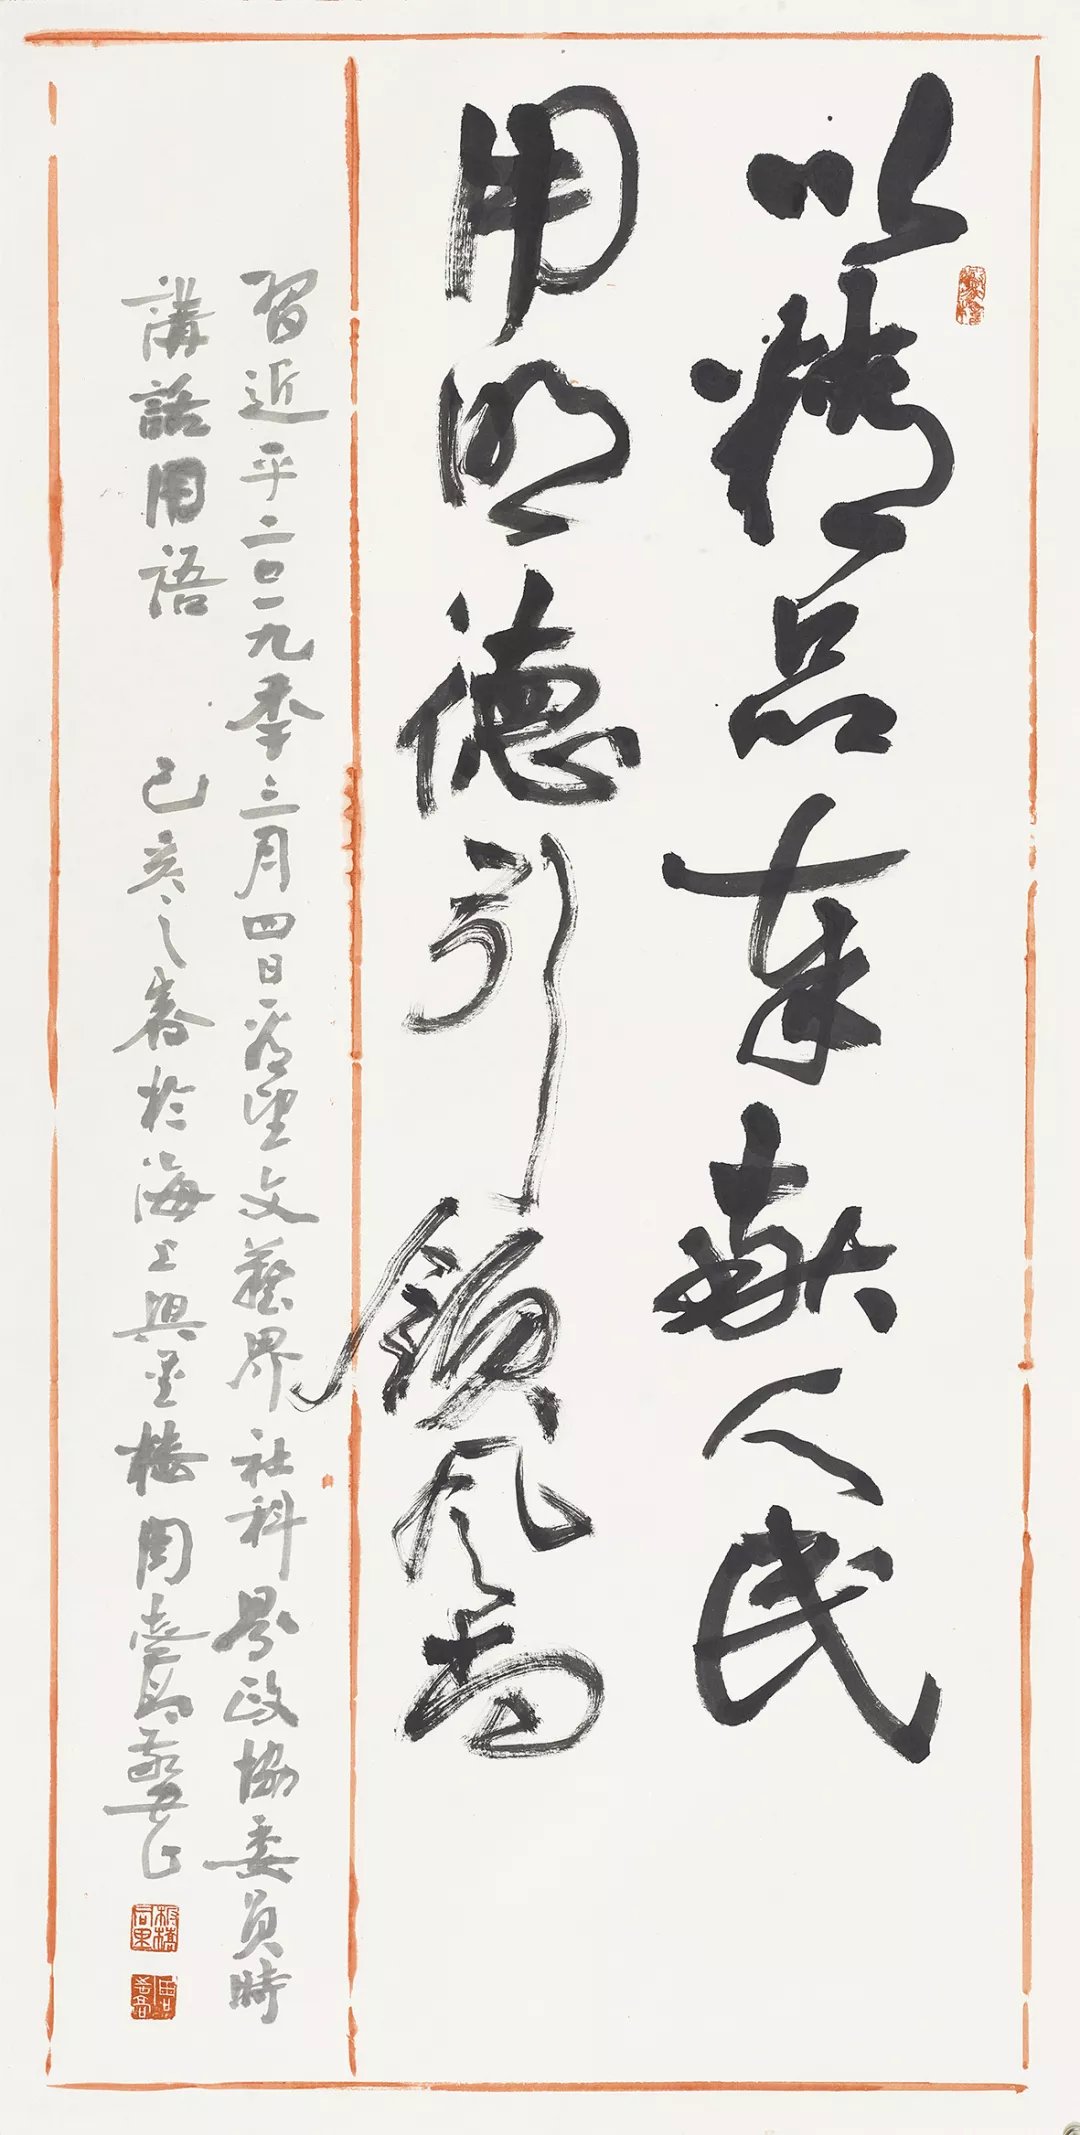 以精品奉献人民
用明德引領风尚
習近平二〇一九年三月四日看望文藝界社科界政協委員時
講話用語 己亥之春於海上樓周志高敬書
板橋同里
周志高